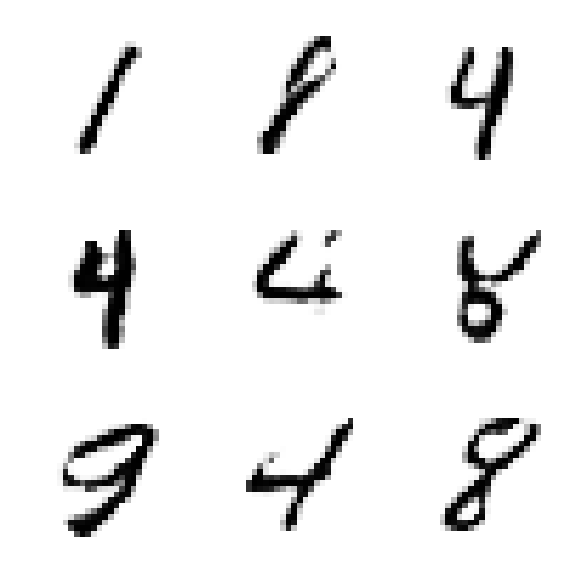 1 8 4
4 4 8
9 4 8